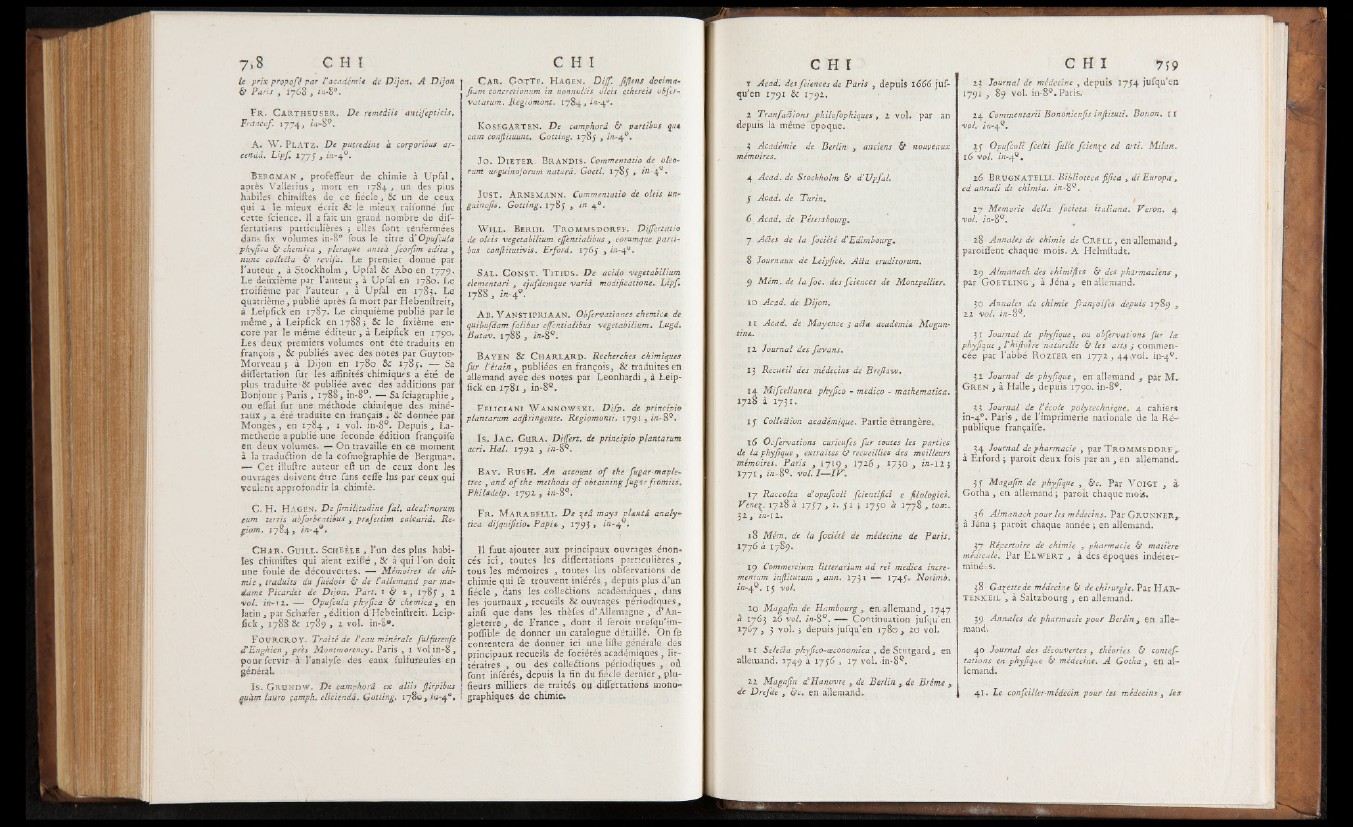 7,8 C H I
C H I
le prix proposé par l'académie de Dijon. A Dijon
& Paris , 1768 , in-8°.
FR. CARTHEUSER. De remediis antisepticis.
Francof. 1774, in-8°.
A. W. PLATZ. De putredine à corporibus ar-
cendâ. Lips. 1775 , in-4°.
BERGMAN , professeur de chimie à Upsal ,
après Vallerius , mort en 1784 , un des plus
habiles chimistes de ce siecle , & un de ceux
qui a le mieux écrit & le mieux raisonné sur
cette science. Il a fait un grand nombre de dis-
sertations particulières ; elles sont renfermées
dans six volumes in-8° sous le titre d'Opuscula
physica & chemica , pleraque anteà seorsim edita ,
nunc collecta & revisa. Le premier donné par
l'auteur , à Stockholm , Upsal & Abo en 1779.
Le deuxième par l'auteur , à Upsal en 1780. Le
troisième par l'auteur , à Upsal en 1783. Le
quatrième , publié après sa mort par Hebenstreit,
à Leipsick en 1787. Le cinquième publié par le
même , à Leipsick en 1788 ; & le sixième en-
core par le même éditeur , à Leipsick en 1790.
Les deux premiers volumes ont été traduits en
françois , & publiés avec des notes par Guyton-
Morveau ; à Dijon en 1780 & 1785. — Sa
dissertation sur les affinités chimiques a été de
plus traduite & publiée avec des additions par
Bonjour ; Paris , 1788 , in-8°. — Sa sciagraphie ,
ou essai sur une méthode chimique des miné-
raux , a été traduite en français , & donnée par
Mongès , en 1784 , 1 vol. in-8°. Depuis , La-
metherie a publié une seconde édition françoise
en deux volumes. — On travaille en ce moment
à la traduction de la cosmographie de Bergman.
— Cet illustre auteur est un de ceux dont les
ouvrages doivent être sans cesse lus par ceux qui
veulent approfondir la chimie.
C. H. HAGEN. De similitudine sal. alcalinorum
cum terris absorbentibus , præsertim calcariâ. Re-
giom. 1784 , in-4°.
CHAR. GUILL. SCHÉELE , l'un des plus habi-
les chimistes qui aient existé , & à qui l'on doit
une foule de découvertes. — Mémoires de chi-
mie , traduits du suédois & de l'allemand par ma-
dame Picardet de Dijon. Part. 1 & 2 , 1785 , 2
vol. in-12. — Opuscula physica & chemica , en
latin , par Schæfer , édition d'Hebeinstreit. Leip-
sick , 1788 & 1789 , 2 vol. in-8°.
FOURCROY. Traité de l'eau minérale sulfureuse
d'Enghien , près Montmorency. Paris , 1 vol in-8 ,
pour servir à l'analyse des eaux sulfureuses en
général.
IS. GRUNDW. De camphorâ ex aliis stirpibus
quàm lauro camph. eliciendâ. Gotting. 1780, in-4°.
CAR. GOTTF. HAGEN. Diss. sistens docima-
siam concretionum in nonnullis oleis ethereis obser-
vatarum. Regiomont. 1784 , in-4°.
KOSEGARTEN. De camphorâ & partibus quæ
eam constituunt. Gotting. 1785 , in-4°.
JO. DIETER. BRANDIS. Commentatio de oleo-
rum unguinosorum naturâ. Goett. 1785 , in 4°.
JUST. ARNEMANN. Commentatio de oleis un-
guinosis. Gotting. 1785 , in 4°.
WILL. BERDL TROMMSDORFF. Dissertatio
de oleis vegetabilium essentialibus , eorumque parti-
bus constitutivis. Erford. 1765 , in-4°.
SAL. CONST. TITIUS. De acido vegetabilium
elementari , ejusdemque variâ modificatione. Lips.
1788 , in-4°.
AB. VANSTIPRIAAN. Observationes chemicæ de
quibusdam salibus essentialibus vegetabilium. Lugd.
Batav. 1788 , in-8°.
BAYEN & CHARLARD. Recherches chimiques
sur l'étain , publiées en françois , & traduites en
allemand avec des notes par Leonhardi , à Leip-
sick en 1781 , in-8°.
FELICIANI WANNOWSKI. Disp. de principio
plantarum adstringente. Regiomonti. 1791 , in-8°.
IS. JAC. GURA. Dissert. de principio plantarum
acri. Hal. 1792 , in-8°.
BAY. RUSH. An account of the sugar-maple-
tree , and of the methods of obtaining sugar fromits.
Philadelp. 1792 , in-8°.
FR. MARABELLI. De zeâ mays plantâ analy-
tica disquisitio. Papiæ , 1793 , in-4°.
Il faut ajouter aux principaux ouvrages énon-
cés ici , toutes les dissertations particulières ,
tous les mémoires , toutes les observations de
chimie qui se trouvent insérés , depuis plus d'un
siécle , dans les collections académiques , dans
les journaux , recueils & ouvrages périodiques ,
ainsi que dans les thèses d'Allemagne , d'An-
gleterre , de France , dont il seroit presqu'im-
possible de donner un catalogue détaillé. On se
contentera de donner ici une liste générale des
principaux recueils de sociétés académiques , lit-
téraires , ou des collections périodiques , où
sont insérés, depuis la fin du siècle dernier , plu-
sieurs milliers de traités ou dissertations monu-
graphiques de chimie.
C H I
C H I 759
1 Acad. des sciences de Paris , depuis 1666 jus-
qu'en 1791 & 1792.
2 Transactions philosophiques , 2 vol. par an
depuis la même époque.
3 Académie de Berlin , anciens & nouveaux
mémoires.
4 Acad. de Stockholm & d'Upsal.
5 Acad. de Turin.
6 Acad. de Pétersbourg.
7 Actes de la société d'Edimbourg.
8 Journaux de Leipsick. Acta eruditorum.
9 Mém. de la soc. des sciences de Montpellier.
10 Acad. de Dijon.
11 Acad. de Mayence ; acta academiæ Mogun-
tinæ.
12 Journal des savans.
13 Recueil des médecins de Breslaw.
14 Miscellanea physico - medico - mathematica.
1728 à 1731.
15 Collection académique. Partie étrangère.
16 Observations curieuses sur toutes les parties
de la physique , extraites & recueillies des meilleurs
mémoires. Paris , 1719 , 1726 , 1730 , in-12 ;
1771 , in-8°. vol. I—IV.
17 Raccolta d'opuscoli scientifici e filologici.
Venez. 1728 à 1757 , t. 51 ; 1750 à 1778 , tom.
32 , in-12.
18 Mém. de la société de médecine de Paris.
1776 à 1789.
19 Commercium litterarium ad rei medicæ incre-
mentum institutum , ann. 1731 — 1745. Norimb.
in-4°. 15 vol.
20 Magasin de Hambourg , en allemand , 1747
à 1763 26 vol. in-8°. — Continuation jusqu'en
1767 , 3 vol. ; depuis jusqu'en 1780 , 20 vol.
21 Selecta physico-œconomica , de Stutgard , en
allemand. 1749 à 1756 , 17 vol. in-8°.
22 Magasin d'Hanovre , de Berlin , de Brême ,
de Dresde , &c. en allemand.
23 Journal de médecine , depuis 1754 jusqu'en
1791 , 89 vol. in-8°. Paris.
24 Commentarii Bononiensis instituti. Bonon. 11
vol. in-4°.
25 Opuscoli scelti sulle scienze ed arti. Milan.
16 vol. in-4°.
26 BRUGNATELLI. Biblioteca fisica , di Europa ,
ed annali di chimia. in-8°.
27 Memorie della societa italiana. Veron. 4
vol. in-8°.
28 Annales de chimie de CRELL , en allemand ,
paroissent chaque mois. A Helmstadt.
29 Almanach des chimistes & des pharmaciens ,
par GOETLING , à Jéna , en allemand.
30 Annales de chimie françoises depuis 1789 ,
22 vol. in-8°.
31 Journal de physique , ou observations sur la
physique , l'histoire naturelle & les arts ; commen-
cée par l'abbé ROZIER en 1772 , 44 vol. in-4°.
32 Journal de physique , en allemand , par M.
GREN , à Halle , depuis 1790. in-8°.
33 Journal de l'école polytechnique. 4 cahiers
in-4°. Paris , de l'imprimerie nationale de la Ré-
publique française.
34 Journal de pharmacie , par TROMMSDORF,
à Erford ; paroît deux fois par an , en allemand.
35 Magasin de physique , &c. Par VOIGT , à
Gotha , en allemand ; paroît chaque mois.
36 Almanach pour les médecins. Par GRUNNER,
à Jéna ; paroît chaque année ; en allemand.
37 Répertoire de chimie , pharmacie & matière
médicale. Par ELWERT , à des époques indéter-
minées.
38 Gazette de médecine & de chirurgie. Par HAR-
TENKEIL , à Saltzbourg , en allemand.
39 Annales de pharmacie pour Berlin , en alle-
mand.
40 Journal des découvertes , théories & contes-
tations en physique & médecine. A Gotha , en al-
lemand.
41. Le conseiller-médecin pour les médecins , les